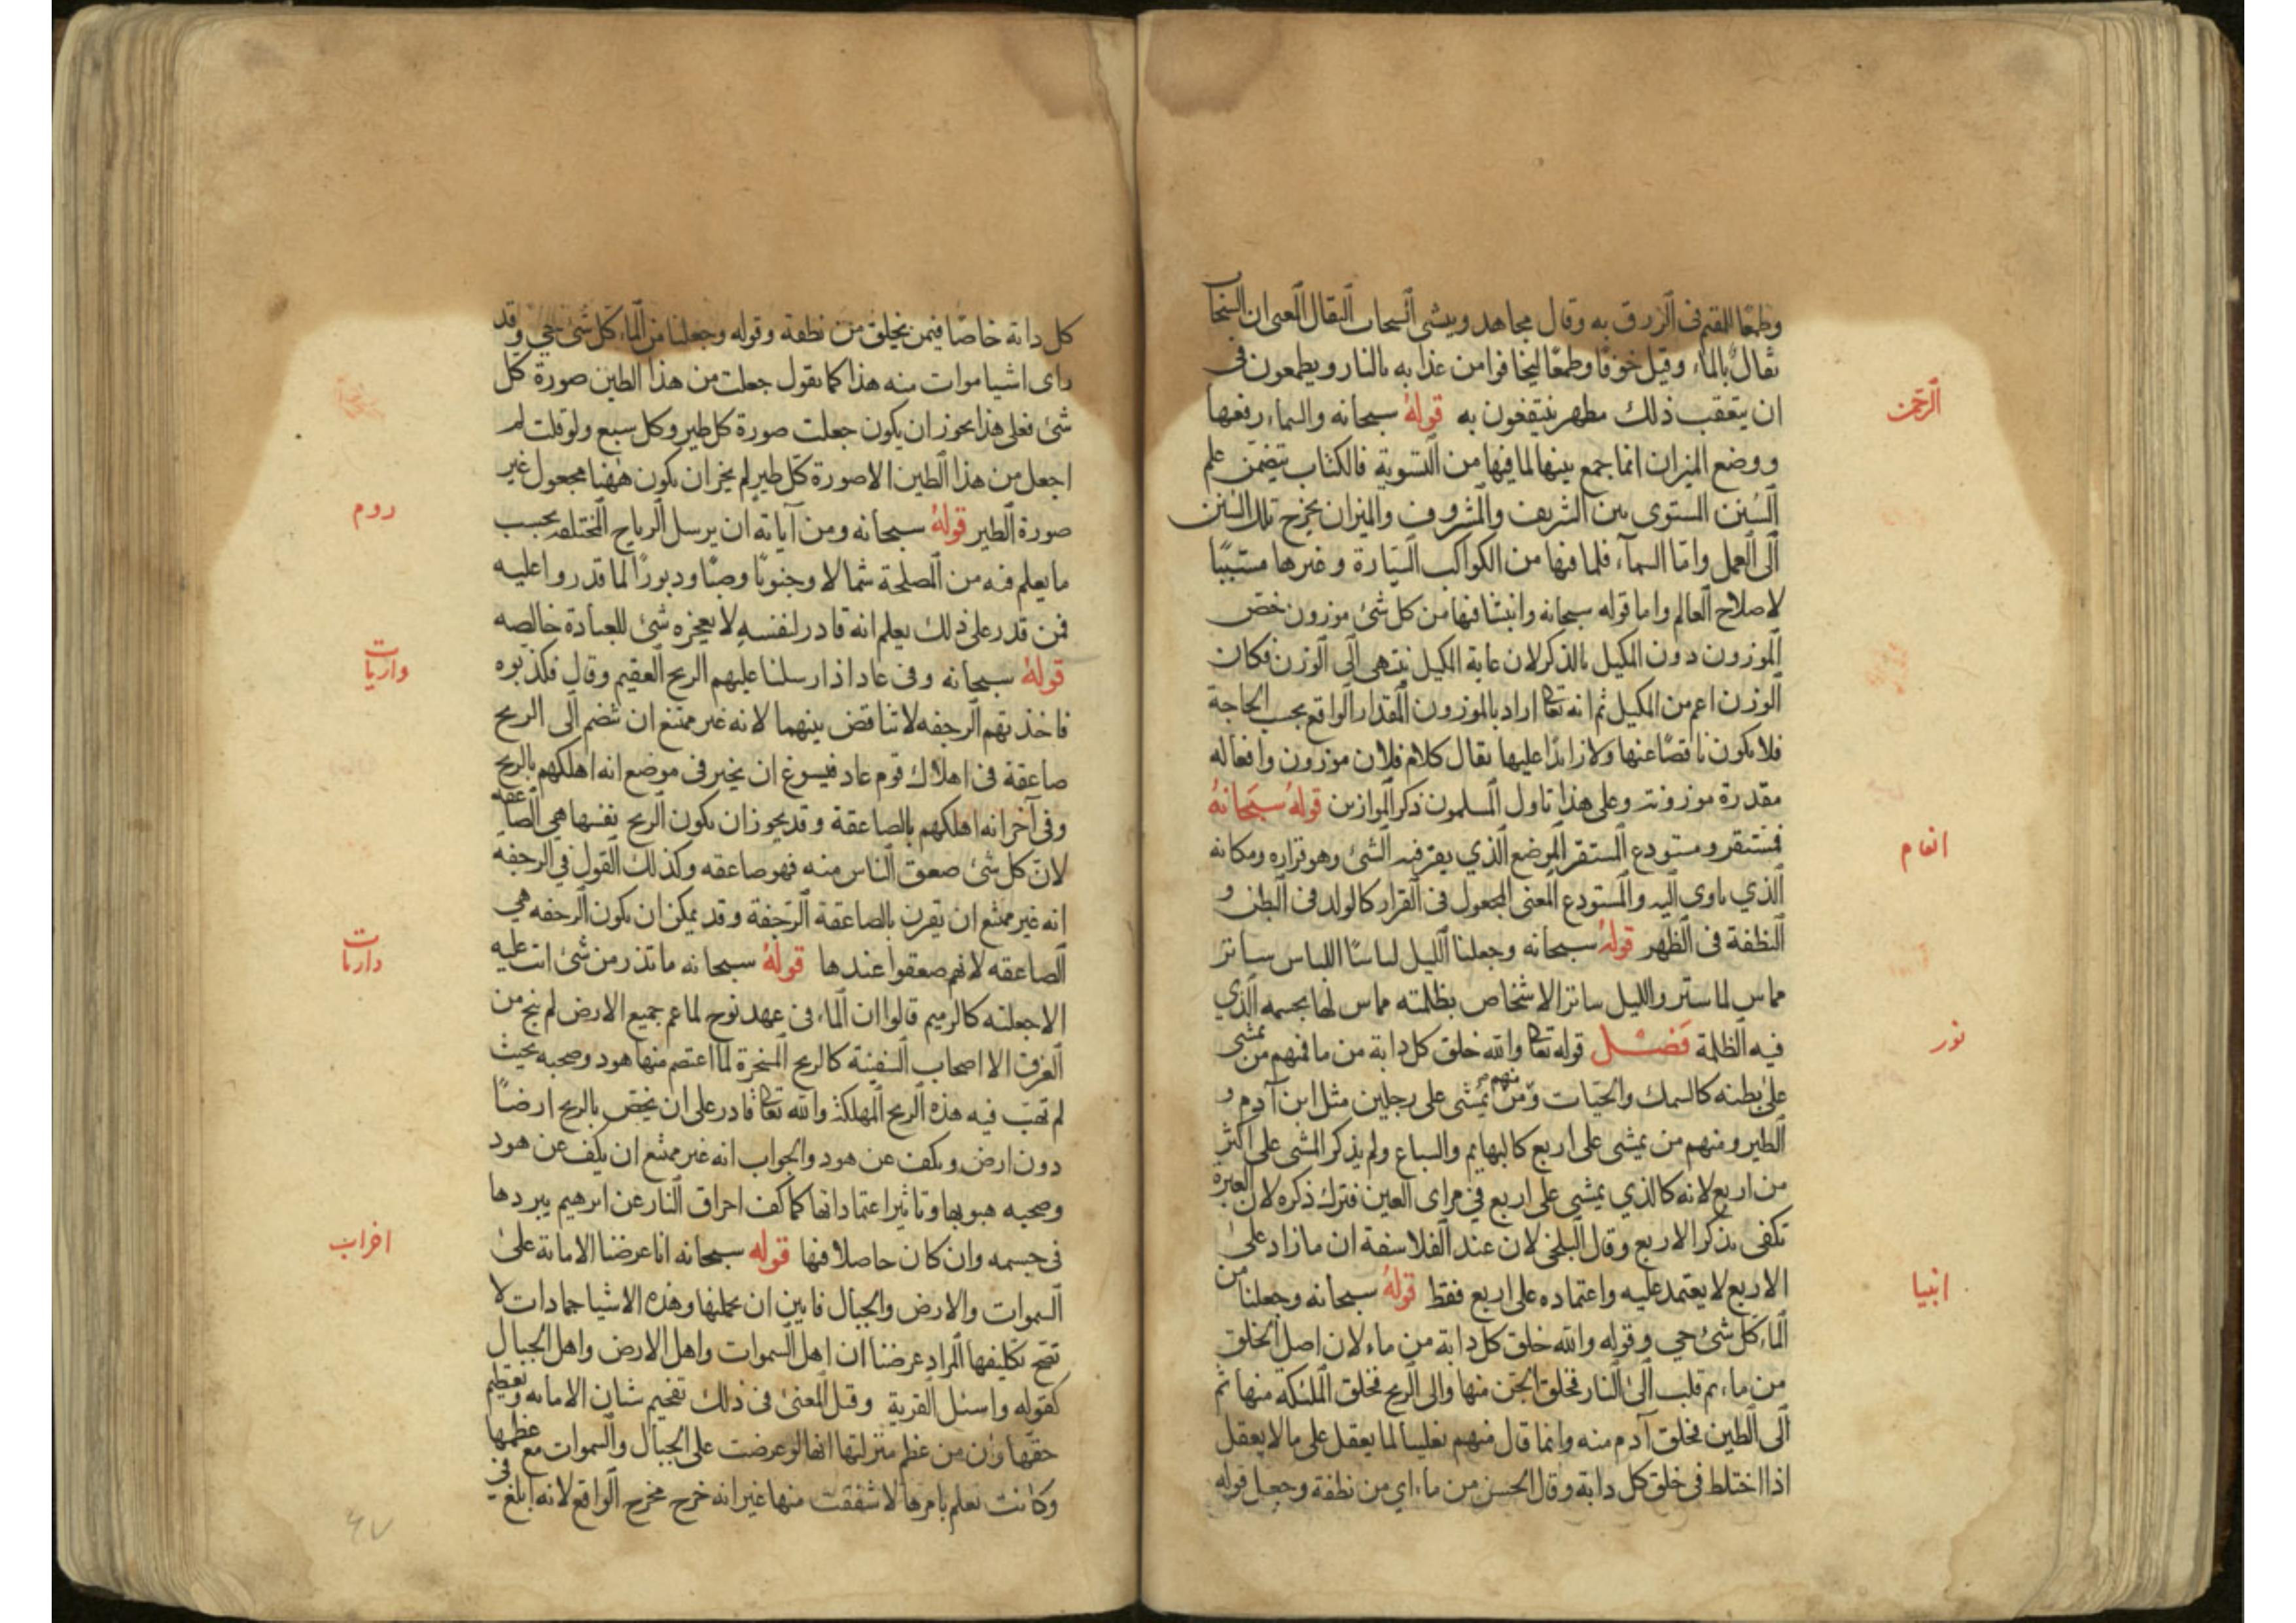 وطمعًا للمقيم في الرزق به وقال مجاهد وينشئ السحاب الثقال المعنى ان السحاب
ثقال بالماء وقيل خوفا وطمعًا ليخافوا من عذابه بالنار ويطمعون في
ان يتعقب ذلك مطهر ينتفعون به قوله سبحانه والسماء رفعها
الرحمن
ووضع الميزان انما جمع بينها لما فيها من التسوية فالكتاب يتضمن علم
السنن المستوى بين الشريف والمشروف والميزان يخرج تلك السنن
الى العمل واما السماء فلما فيها من الكواكب السيارة وغيرها مسببًا
لاصلاح العالم واما قوله سبحانه وانبتنا فيها من كل شئ موزون خص
الموزون دون المكيل بالذكر لان غاية المكيل ينتهى الى الوزن فكان
الوزن اعم من المكيل ثم انه تعا اراد بالموزون المقدار الواقع بحسب الحاجة
فلا يكون ناقصًا عنها ولا زائدًا عليها يقال كلام فلان موزون وافعاله
مقدرة موزونة وعلى هذا تاول المسلمون ذكر الموازين قوله سبحانه
فمستقر ومستودع المستقر الموضع الذي يقر فيه الشئ وهو قراره ومكانه
انعام
الذي ياوى اليه والمستودع المعنى المجعول في القرار كالولد في البطن و
النطفة في الظهر قوله سبحانه وجعلنا الليل لباسًا اللباس ساتر
مماس لما ستر والليل ساتر الاشخاص بظلمته مماس لها بجسمه الذي
فيه الظلمة فصل قوله تعا والله خلق كل دابة من ما فمنهم من يمشى
نور
على بطنه كالسمك والحيات ومنهم من يمشى على رجلين مثل ابن آدم و
الطير ومنهم من يمشى على اربع كالبهايم والسباع ولم يذكر المشى على اكثر
من اربع لانه كالذي يمشي على اربع في مراى العين فترك ذكره لان العبرة
تكفى بذكر الاربع وقال البلخي لان عند الفلاسفة ان ما زاد على
الاربع لا يعتمد عليه واعتماده على اربع فقط قوله سبحانه وجعلنا من
انبيا
الماء كل شئ حي وقوله والله خلق كل دابة من ماء لان اصل الخلق
من ماء ثم قلب الى النار فخلق الجن منها والى الريح فخلق الملئكة منها ثم
الى الطين فخلق آدم منه وانما قال منهم تغليبا لما يعقل على ما لا يعقل
اذا اختلط في خلق كل دابة وقال الحسن من ماء اي من نطفة وجعل قوله
كل دابة خاصًا فيمن يخلق من نطفة وقوله وجعلنا من الماء كل شئ حي وقد
راى اشيا موات منه هذا كما يقول جعلت من هذا الطين صورة كل
شئ فعلى هذا يجوز ان يكون جعلت صورة كل طير وكل سبع ولو قلت لم
اجعل من هذا الطين الا صورة كل طير لم يجز ان يكون ههنا مجعول غير
صورة الطير قوله سبحانه ومن آياته ان يرسل الرياح المختلفة بحسب
روم
ما يعلم فيه من المصلحة شمالا وجنوبًا وصبًا ودبورًا لما قدروا عليه
فمن قدر على ذلك يعلم انه قادر لنفسه لا يعجزه شئ للعبادة خالصه
قوله سبحانه وفى عاد اذ ارسلنا عليهم الريح العقيم وقال فكذبوه
واريات
فاخذتهم الرجفه لا تناقض بينهما لانه غير ممتنع ان تنضم الى الريح
صاعقة في اهلاك قوم عاد فيسوغ ان يخبر في موضع انه اهلكهم بالريح
وفى آخر انه اهلكهم بالصاعقة وقد يجوز ان يكون الريح نفسها هي الصاعقه
لان كل شئ صعق الناس منه فهو صاعقه وكذلك القول في الرجفه
انه غير ممتنع ان يقرن بالصاعقة الرجفة وقد يمكن ان يكون الرجفه هي
الصاعقه لانهم صعقوا عندها قوله سبحانه ما تذر من شئ اتت عليه
دارىات
الا جعلته كالرميم قالوا ان الماء في عهد نوح لما عم جميع الارض لم ينج من
الغرق الا اصحاب السفينة كالريح المسخرة لما اعتصم منها هود وصحبه بحيث
لم تهب فيه هذه الريح المهلكة والله تعا قادر على ان يخص بالريح ارضًا
دون ارض ويكف عن هود والجواب انه غير ممتنع ان يكف عن هود
وصحبه هبوبها وتاثير اعتماداتها كما كف احراق النار عن ابرهيم ببردها
في جسمه وان كان حاصلا فيها قوله سبحانه انا عرضنا الامانة على
اخراب
السموات والارض والجبال فابين ان يحملنها وهذه الاشيا جمادات لا
تصح تكليفها المراد عرضنا ان اهل السموات واهل الارض واهل الجبال
كقوله واسئل القرية وقيل المعنى في ذلك تفخيم شان الامانه وتعظيم
حقها وان من عظم منزلتها انها لو عرضت على الجبال والسموات مع عظمها
وكانت تعلم بامرها لاشفقت منها غير انه خرج مخرج الواقع لانه ابلغ في
٤٧